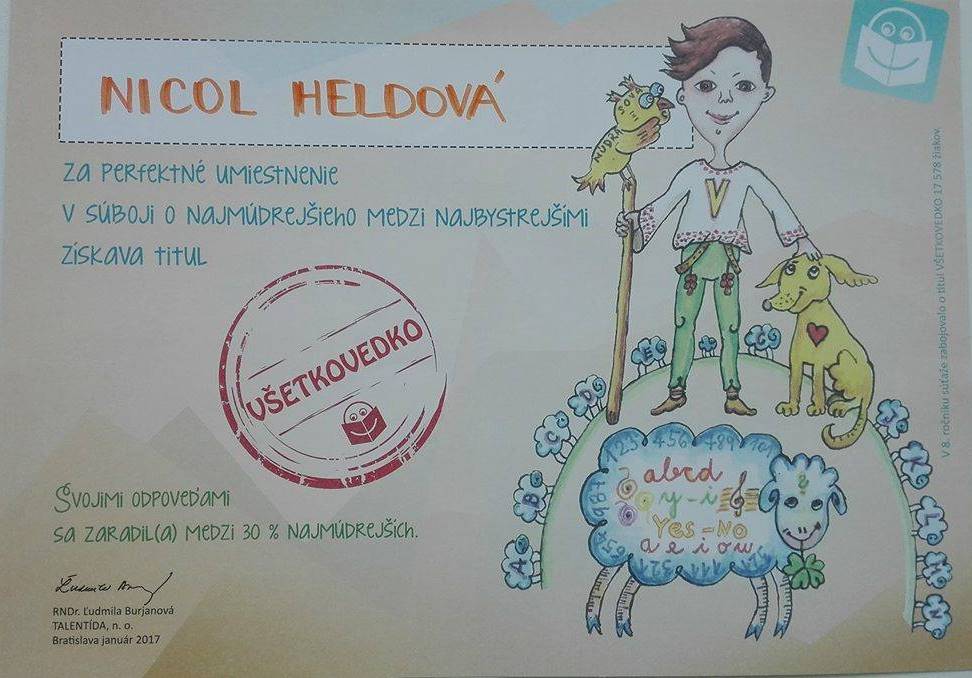 NICOL HELDOVÁ
Za perfektné umiestnenie
v súboji o najmúdrejšieho medzi najbystrejšími
získava titul
VŠETKOVEDKO
Svojimi odpoveďami
sa zaradil(a) medzi 30 % najmúdrejších.
RNDr. Ľudmila Burjanová
TALENTÍDA, n. o.
Bratislava január 2017
SOVA
MÚDRA
V
V 8. ročníku súťaže zabojovalo o titul VŠETKOVEDKO 17 578 žiakov.
A
B
C
D
E
K
L
M
N
abcd
y-i
Yes-No
a e i o u